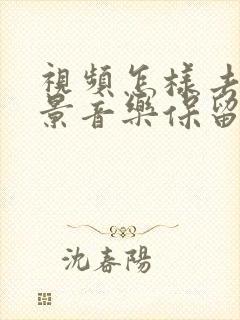 視頻怎樣去
景音樂保留
沈春陽